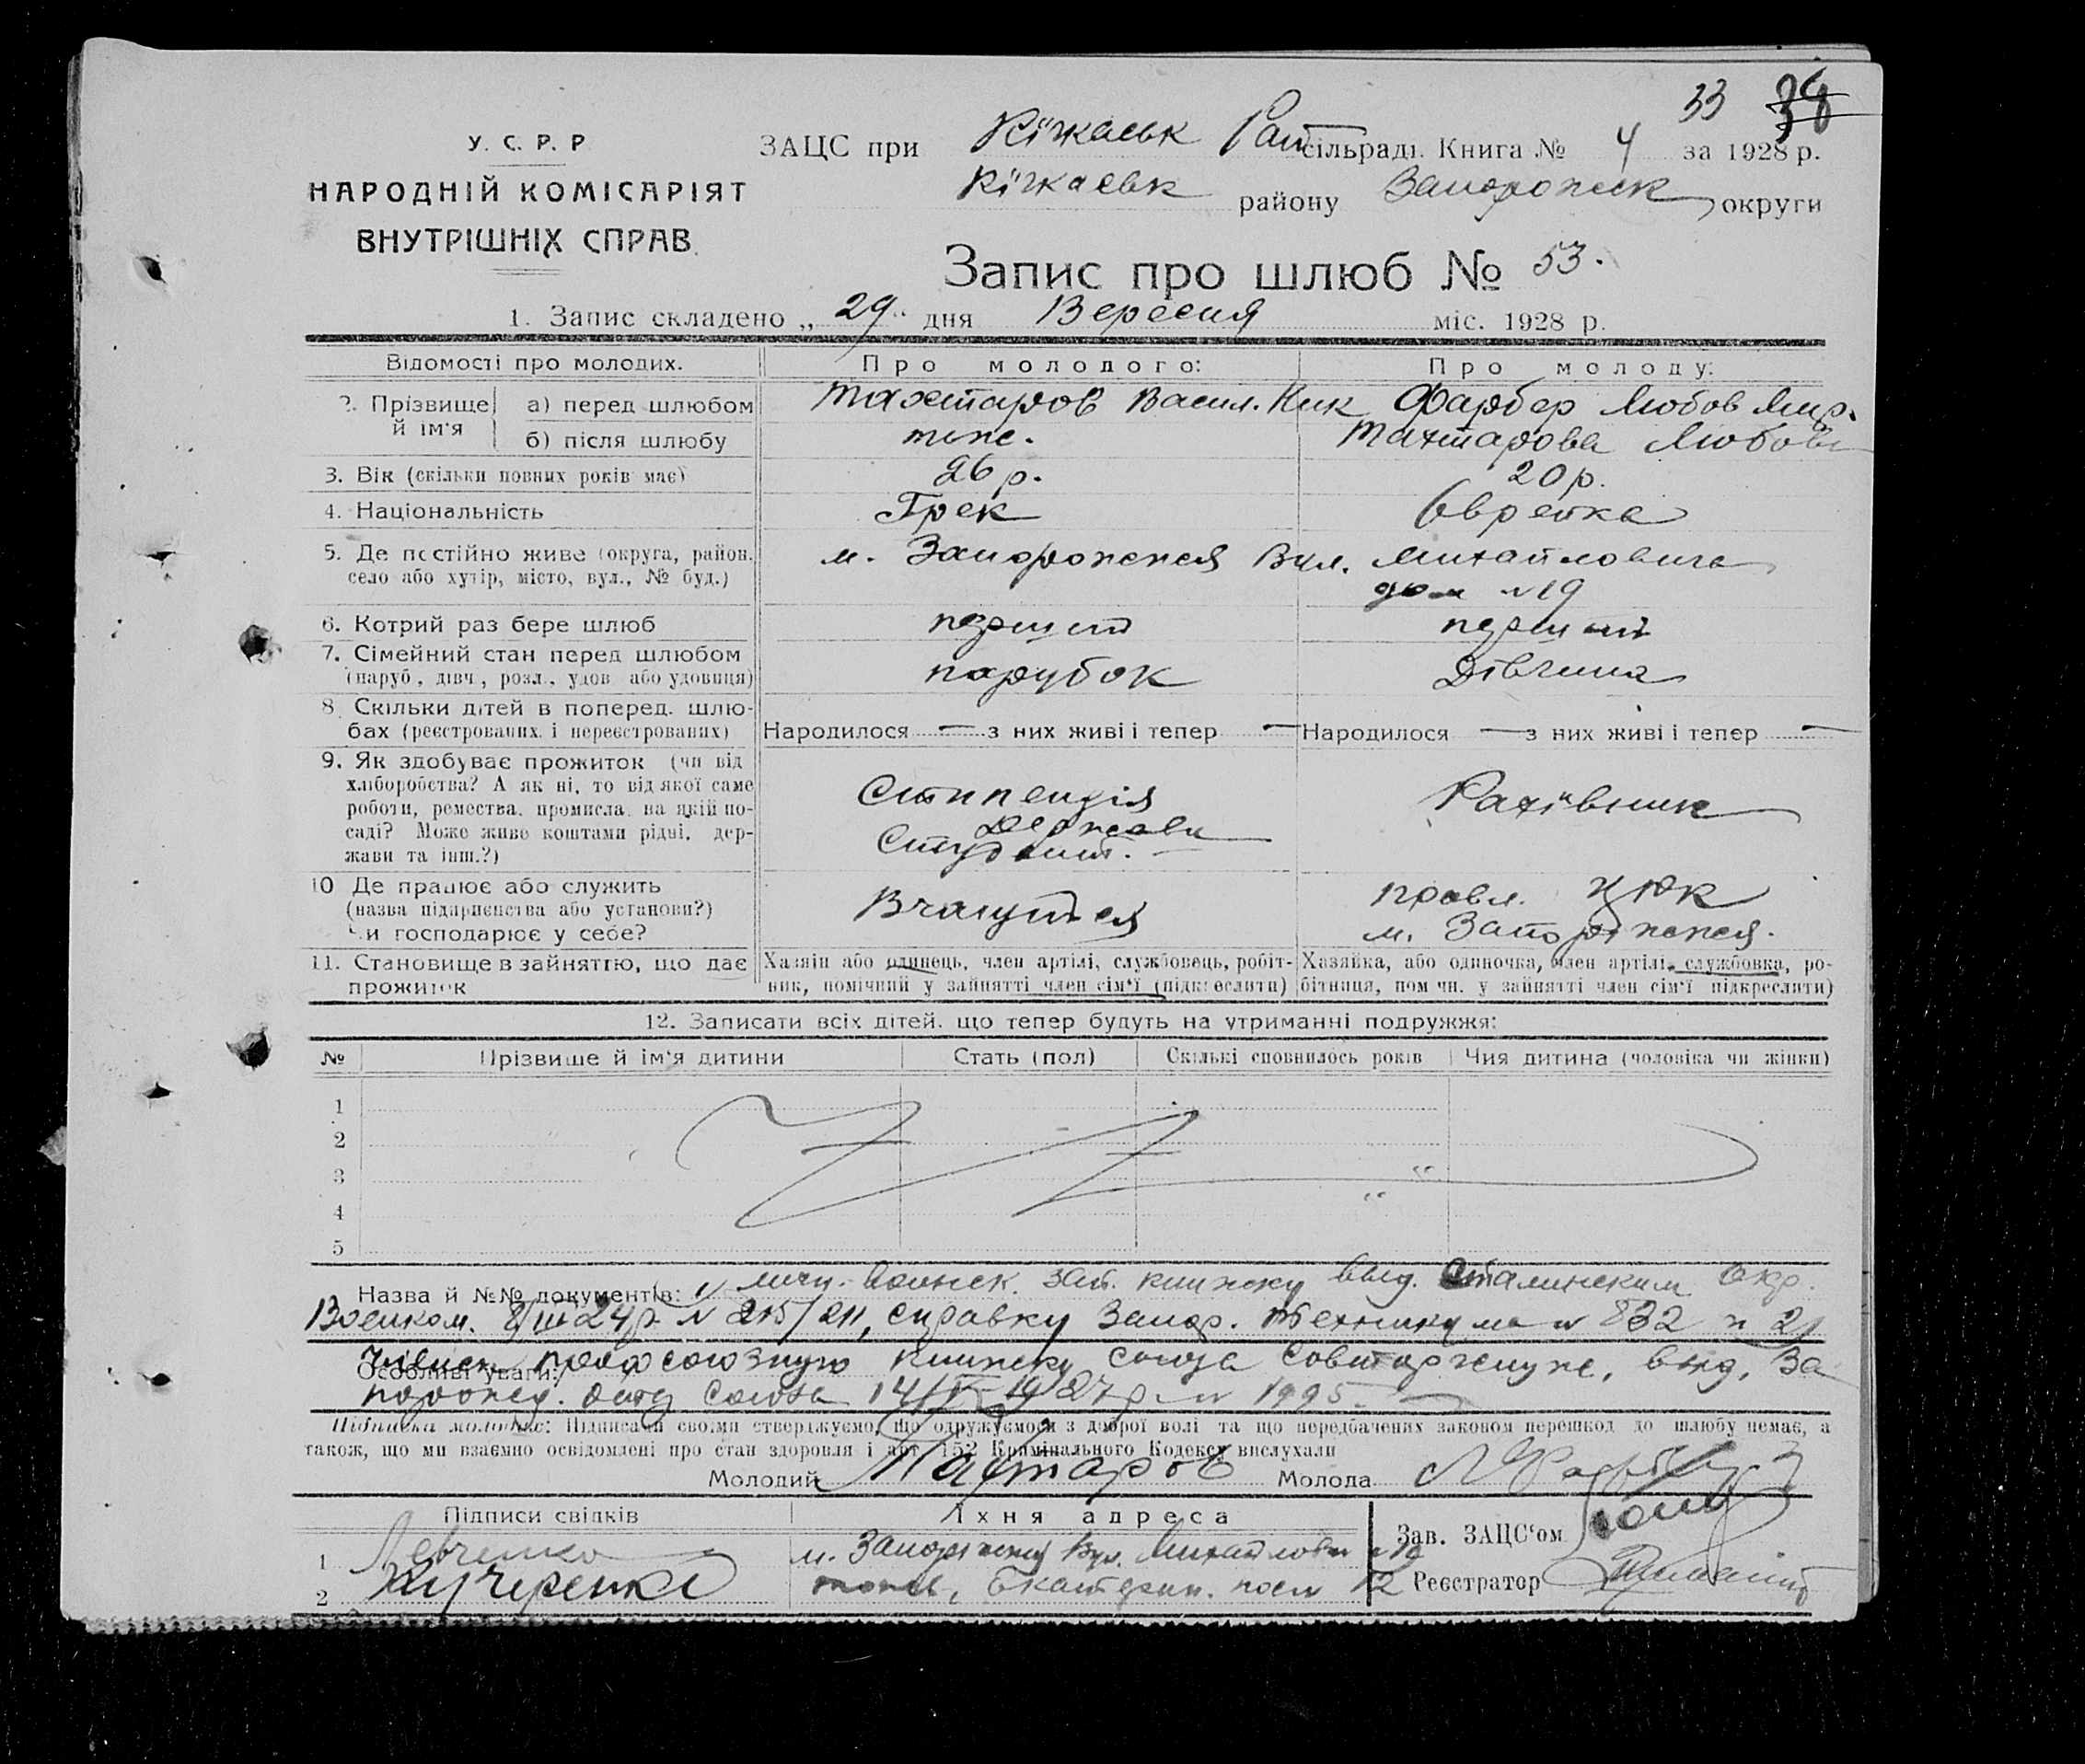 33 38
У. С. Р. Р
НАРОДНІЙ КОМІСАРІЯТ
ВНУТРІШНІХ СПРАВ.
ЗАЦС при Кічкаськ Рай сільраді. Книга № 4 за 1928 р.
Кічкаськ району Запорожск округи
Запис про шлюб № 53.
1. Запис складено „ 29 " дня Вересня міс. 1928 р.
Відомості про молодих. Про молодого: Про молоду:
2. Прізвище й ім'я а) перед шлюбом Тахтаров Васил. Ник Фарбер Любов Мир.
б) після шлюбу теж. Тахтарова Любовь
3. Вік (скільки повних років має) 26 р. 20 р.
4. Національність Грек Єврейка
5. Де постійно живе (округа, район. м. Запорожжя Вул. Михайловича
село або хутір, місто, вул., № буд.) дом № 19
6. Котрий раз бере шлюб перший перший
7. Сімейний стан перед шлюбом парубок Дівчина
(паруб., дівч., розл., удов або удовиця)
8. Скільки дітей в поперед. шлю-
бах (реєстрованих і нереєстрованих) Народилося — з них живі і тепер — Народилося — з них живі і тепер —
9. Як здобуває прожиток (чи від
хліборобства? А як ні, то від якої саме Стипендія Рахівник
роботи, ремества, промисла, на якій по- Держави
саді? Може живе коштами рідні, дер- Студент.
жави та інш.?)
10 Де працює або служить Вчащийся правл.
(назва підприємства або установи?) м. Запоріжжя.
Чи господарює у себе?
11. Становище в зайняттю, що дає Хазяїн або одинець, член артілі, службовець, робіт- Хазяйка, або одиночка, член артілі, службовка, ро-
прожиток ник, помічний у зайнятті член сім'ї (підкреслити) бітниця, пом чн. у зайнятті член сім'ї підкреслити)
12. Записати всіх дітей, що тепер будуть на утриманні подружжя:
№ Прізвище й ім'я дитини Стать (пол) Скількі сповнилось років Чия дитина (чоловіка чи жінки)
1
2
3
4
5
Назва й №№ документів: книжку выд. Сталинским Окр.
Военком. № 215/211, справку Запор. Техникума № 832 и 2)
Особливі уваги: профсоюзную книжку союза Совторгслуж, выд. За
союза 1927 р. № 1995.
Підписка молодих: Підписами своїми стверджуємо, що одружуємося з доброї волі та що передбачених законом перешкод до шлюбу немає, а
також, що ми взаємно освідомлені про стан здоровля і арт. 152 Крімінального Кодексу вислухали
Молодий Тахтаров Молода
Підписи свідків Їхня адреса
Зав. ЗАЦС'ом
1 Левченко м. Запоріжжя Вул. Михайлов № 19
2 Кучеренко 12 Реєстратор